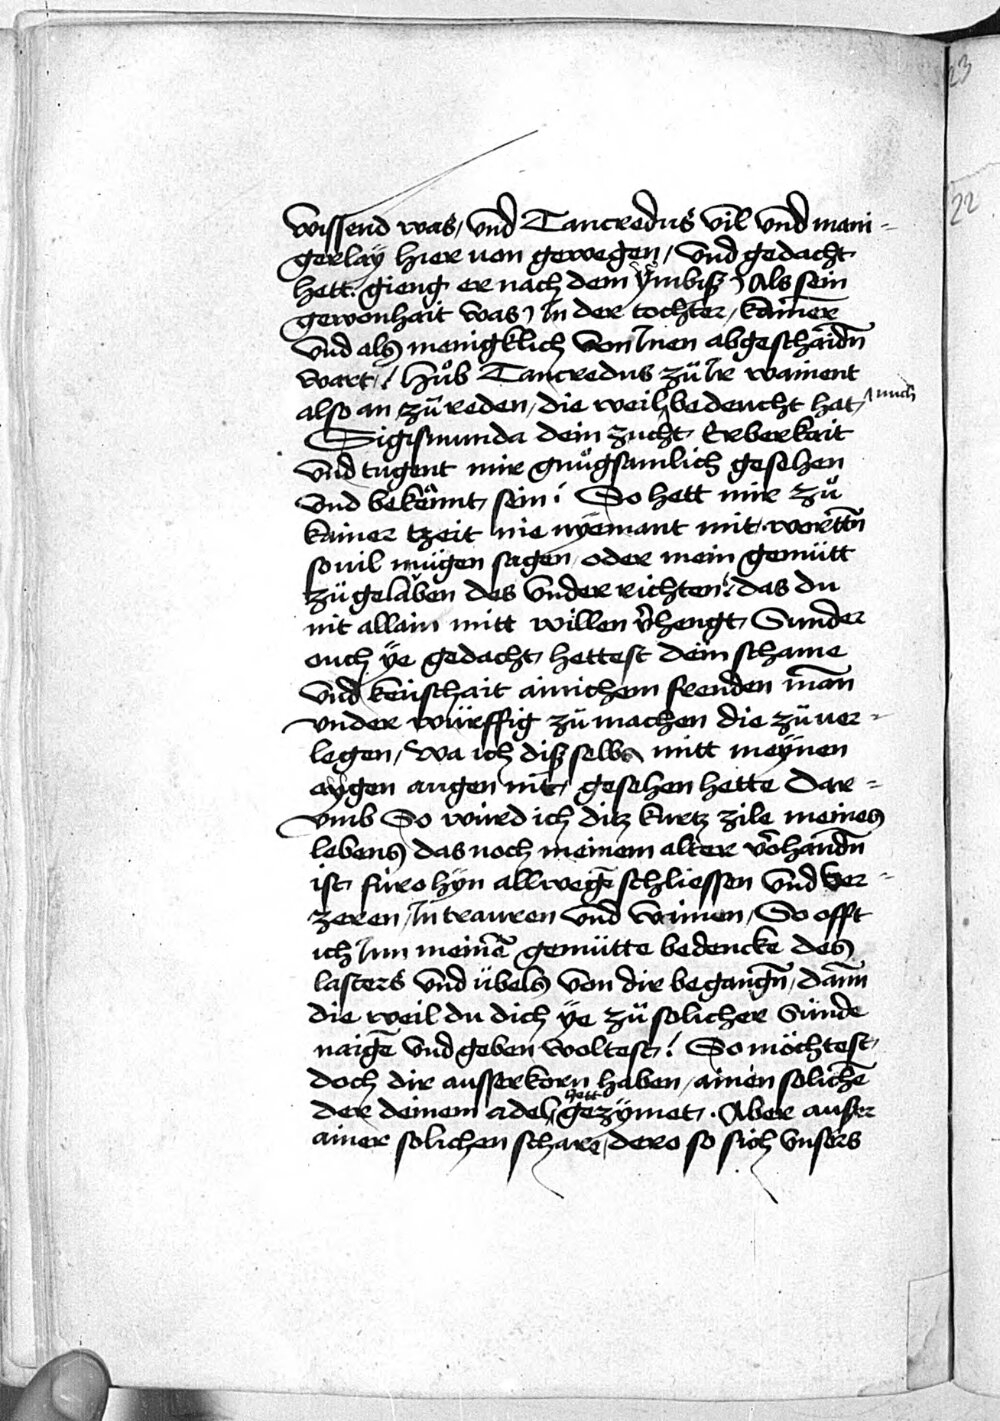 wissend was / vnd Tancredus vil vnd meni-
gerlaÿ hier von gewegen / vnd gedacht
hett. gieng er nach dem ÿmbiß / Als sein
gewonhait was / In der tochter / kam̄er
vnd als menigklich von Inen abgeschaidn̄
wart / Hůb Tancredus zů Ir wainent
also an zů reden / die weil bedeucht hat / mich
Sigismunda dein zucht Erberkait
vnd tugent mir gnůgsamlich gesehen
vnd bekennt sein / So hett mir zů
kainer tzeit nie nÿemant mit wortt̄n
souil mügen sagen / oder mein gemütt
zü gelauben des vnder richten / das du
nit allain mitt willen v̄hengt Sunder
ouch ÿe gedacht hettest dein schame
vnd keüschait ainichem frenden man̄
vnder würffig zü machen die zü ver-
legen / wa ich diß selbs mitt meÿnen
aÿgen augen nit gesehen hette Dar-
vmb So würd ich ditz kurtz zile meines
lebens das noch meinem alter v̄ohandn̄
ist fürohÿn allwegē schliessen vnd ver-
zeren / In trauren vnd wainen / So offt
ich Inn meinē gemütte bedencke des
lasters vnd übels von dir begangn̄ / dann
die weil du dich ÿe zü solicher Sünde
naigē vnd geben woltest / So möchtest
doch dir ausserkorn haben / ainen solichē
der deinem adel hett gezÿmet. Aber ausser
ainer solichen schare / dero so sich vnsers
23
22